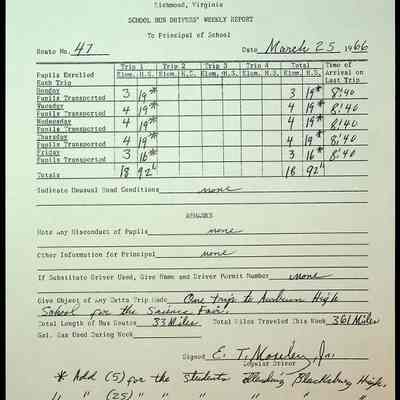 Richmond, Virginia
SCHOOL BUS DRIVERS' WEEKLY REPORT
To Principal of School
Route No. 47 Date March 25, 1966
Trip 1 Trip 2 Trip 3 Trip 4 Total Time of
Pupils Enrolled Elem. H.S. Elem. H.S. Elem. H.S. Elem. H.S. Elem. H.S. Arrival on
Each Trip Last Trip
Monday
Pupils Transported 3 19* 3 19* 8:40
Tuesday
Pupils Transported 4 19* 4 19* 8:40
Wednesday
Pupils Transported 4 19* 4 19* 8:40
Thursday
Pupils Transported 4 19* 4 19* 8:40
Friday
Pupils Transported 3 16* 3 16* 8:40
Totals 18 92 18 92
Indicate Unusual Road Conditions none
REMARKS
Note Any Misconduct of Pupils none
Other Information for Principal none
If Substitute Driver Used, Give Name and Driver Permit Number none
Give Object of Any Extra Trip Made One trip to Auburn High
School for the Science Fair.
Total Length of Bus Route 33 Miles Total Miles Traveled This Week 361 Miles
Gal. Gas Used During Week
Signed E. T. Moseley, Jr.
Regular Driver
* Add (5) for the students attending Blacksburg High.
" " (25) " " " " " "